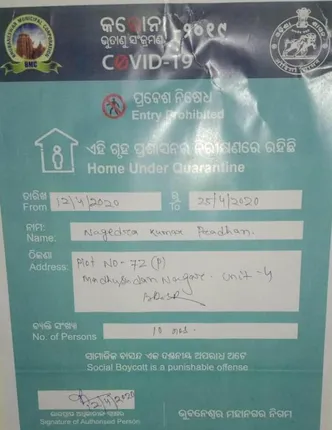 BHUBANESWAR MUNICIPAL CORPORATION
BMC
କରୋନା
ଭୂତାଣୁ ସଂକ୍ରମଣ -୨୦୧୯
COVID-19
ପ୍ରବେଶ ନିଷେଧ
Entry Prohibited
ଏହି ଗୃହ ପ୍ରଶାସନର ନିରୀକ୍ଷଣରେ ରହିଛି
Home Under Quarantine
ତାରିଖ
From 12/4/2020
ରୁ
To 25/4/2020
ନାମ:
Name: Kumar Pradhan.
ଠିକଣା
Address: Plot NO- 72 (P)
Madhusudan Nagar. Unit-4
BBSR
ବ୍ୟକ୍ତି ସଂଖ୍ୟା
No. of Persons 10 nos.
ସାମାଜିକ ବାସନ୍ଦ ଏକ ଦଣ୍ଡନୀୟ ଅପରାଧ ଅଟେ
Social Boycott is a punishable offense
12/4/2020
Signature of Authorised Person
ଭୁବନେଶ୍ୱର ମହାନଗର ନିଗମ